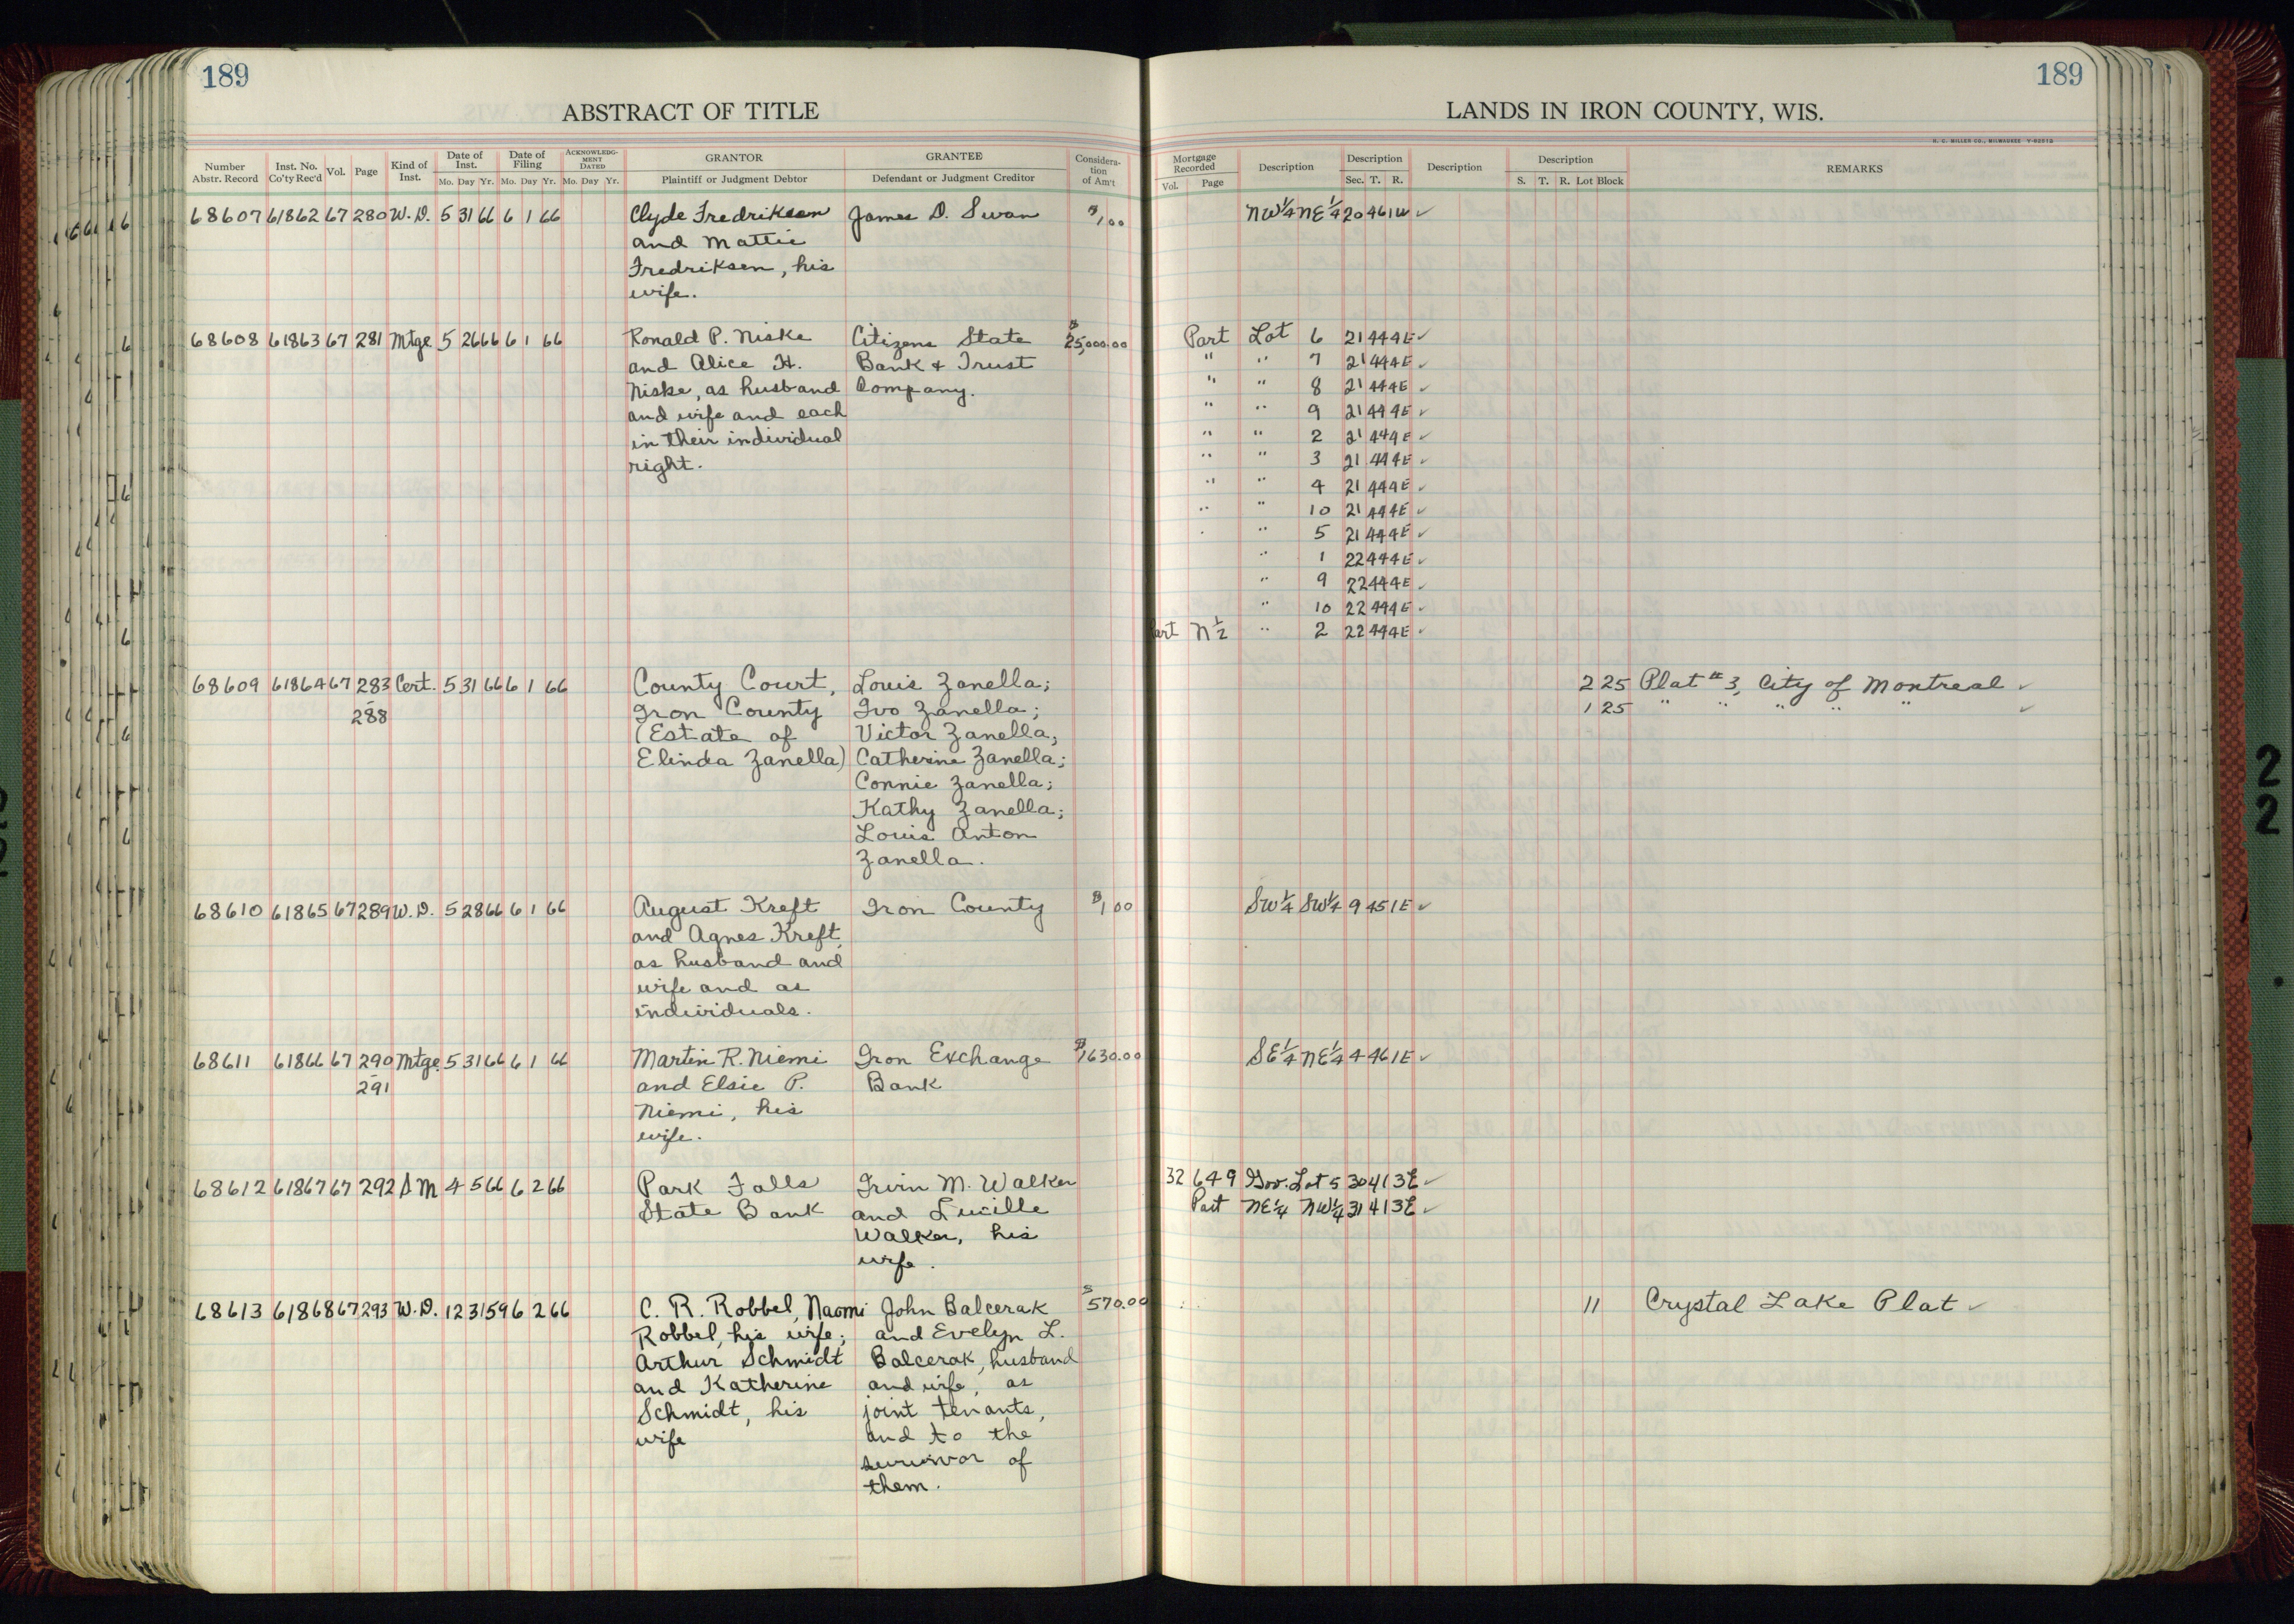 189
ABSTRACT OF TITLE
Number Abstr. Record Inst. No. Co'ty Rec'd Vol. Page Kind of Inst. Date of Inst. Mo. Day Yr. Date of Filing Mo. Day Yr. ACKNOWLEDGMENT DATED Mo. Day Yr. GRANTOR Plaintiff or Judgment Debtor GRANTEE Defendant or Judgment Creditor Consideration of Am't
68607 61862 67 280 W.D. 5 31 66 6 1 66 Clyde Fredriksen James D. Swan $1.00
and Mattie
Fredriksen, his
wife.
68608 61863 67 281 Mtge 5 26 66 6 1 66 Ronald P. Niske Citizens State $25,000.00
and Alice H. Bank & Trust
Niske, as husband Company.
and wife and each
in their individual
right.
68609 61864 67 283 Cert. 5 31 66 6 1 66 County Court, Louis Zanella;
- 288 Iron County Ivo Zanella;
(Estate of Victor Zanella;
Elinda Zanella) Catherine Zanella;
Connie Zanella;
Kathy Zanella;
Louis Anton
Zanella.
68610 61865 67 289 W.D. 5 28 66 6 1 66 August Kreft Iron County $1.00
and Agnes Kreft,
as husband and
wife and as
individuals.
68611 61866 67 290 Mtge. 5 31 66 6 1 66 Martin R. Niemi Iron Exchange $1630.00
- 291 and Elsie P. Bank
Niemi, his
wife.
68612 61867 67 292 S M 4 5 66 6 2 66 Park Falls Irvin M. Walker
State Bank and Lucille
Walker, his
wife.
68613 61868 67 293 W.D. 12 31 59 6 2 66 C. R. Robbel, Naomi John Balcerak $570.00
Robbel, his wife; and Evelyn L.
Arthur Schmidt Balcerak, husband
and Katherine and wife, as
Schmidt, his joint tenants,
wife and to the
survivor of
them.
189
LANDS IN IRON COUNTY, WIS.
H. C. MILLER CO., MILWAUKEE
Mortgage Recorded Vol. Page Description Description Sec. T. R. Description Description S. T. R. Lot Block REMARKS
NW¼ NE¼ 20 46 1W ✓
Part Lot 6 21 44 4E ✓
" " 7 21 44 4E ✓
" " 8 21 44 4E ✓
" " 9 21 44 4E ✓
" " 2 21 44 4E ✓
" " 3 21 44 4E ✓
" " 4 21 44 4E ✓
" " 10 21 44 4E ✓
" 5 21 44 4E ✓
" 1 22 44 4E ✓
" 9 22 44 4E ✓
" 10 22 44 4E ✓
Part N½ " 2 22 44 4E ✓
2 25 Plat #3, City of Montreal ✓
1 25 " " " " " ✓
SW¼ SW¼ 9 45 1E ✓
SE¼ NE¼ 4 46 1E ✓
32 649 Gov. Lot 5 30 41 3E ✓
Part NE¼ NW¼ 31 41 3E ✓
11 Crystal Lake Plat ✓
2
2